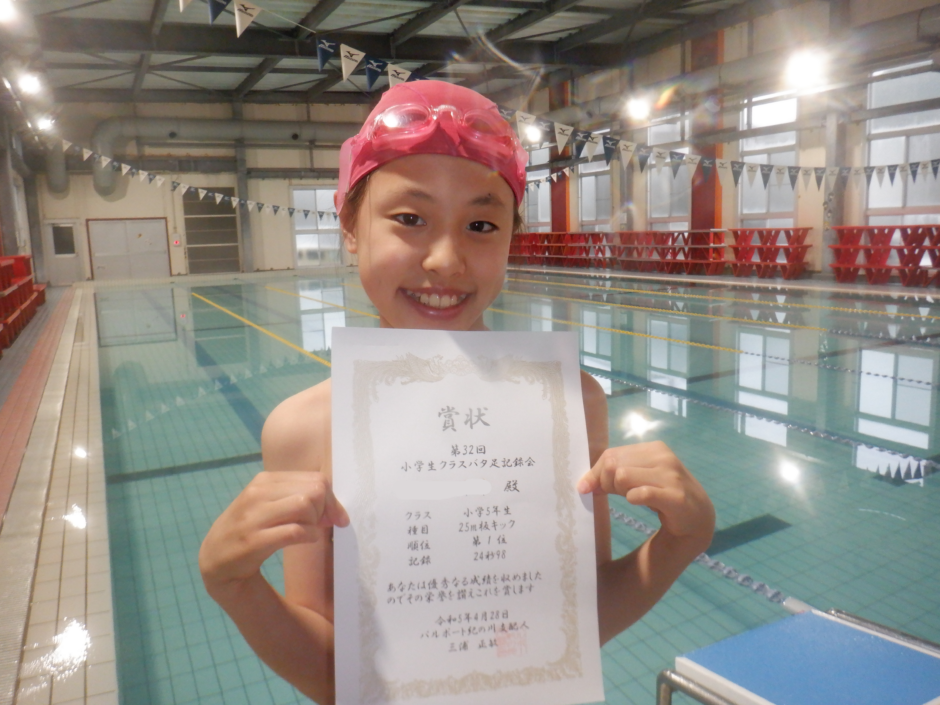 賞状
第32回
小学生クラスバタ足記録会
殿
クラス 小学5年生
種目 25m板キック
順位 第1位
記録 24秒98
あなたは優秀なる成績を収めました
のでその栄誉を讃えこれを賞します
令和5年4月28日
パルポート紀の川支配人
三浦 正敏